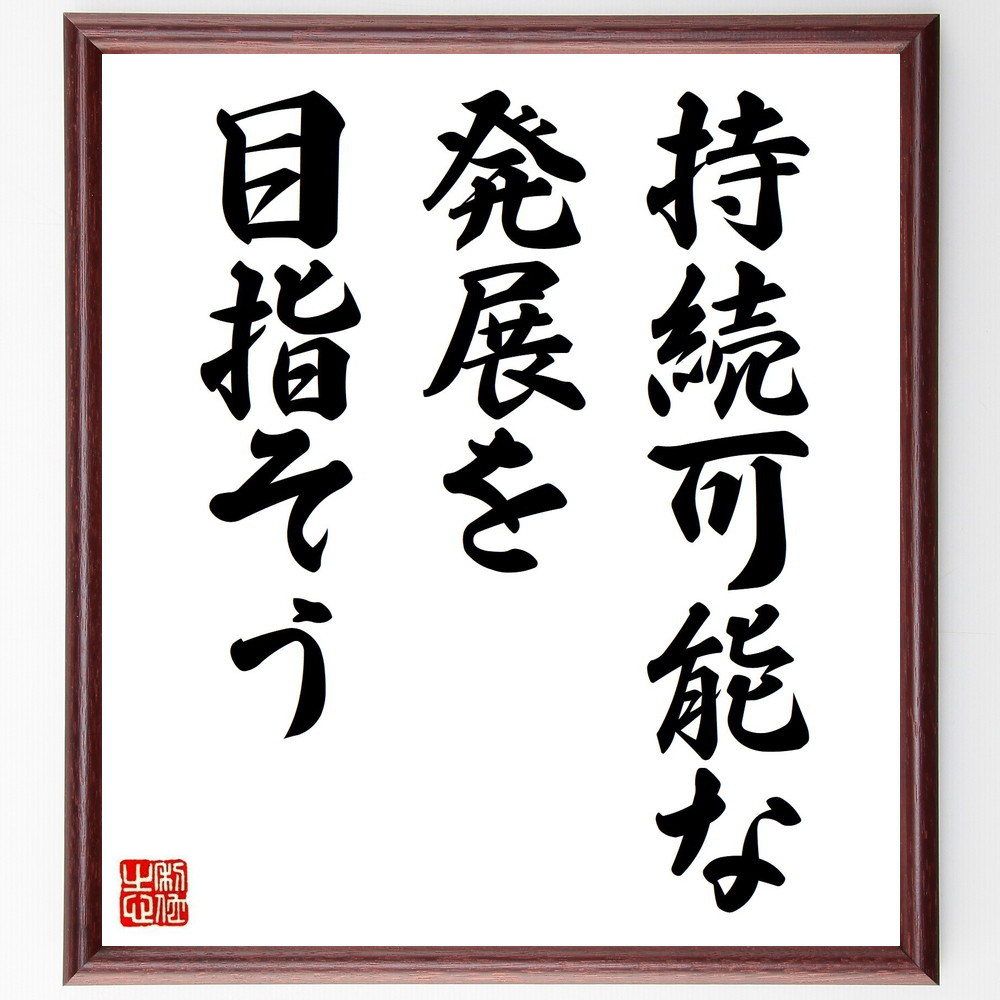 持続可能な
発展を
目指そう